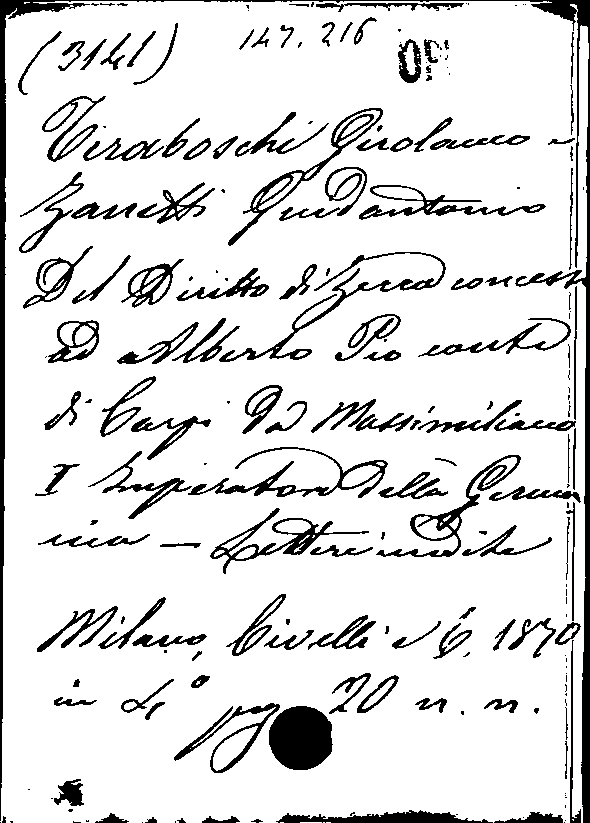 (3141) 147.216 OP
Tiraboschi Girolamo e
Zanetti Guidantonio
Del Diritto di Zecca concesso
ad Alberto Pio conte
di Carpi da Massimiliano
I Imperatore della Germa
nia — Lettere inedite
Milano, Civelli e C. 1870
in 4° pg 20 n. n.